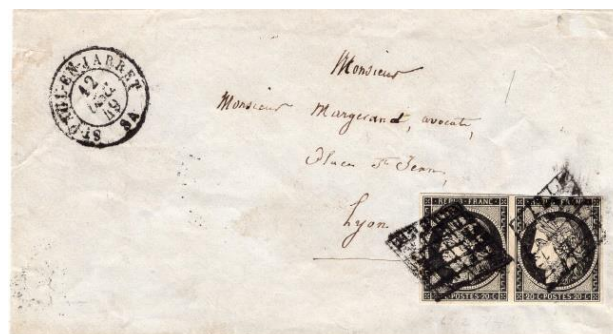 ST-PAUL-EN-JARRET
12
DEC
49
84
Monsieur
Monsieur Margerand, avocat,
Place St Jean,
Lyon
REPUB. FRANC.
20 C POSTES 20 C
20 C POSTES 20 C